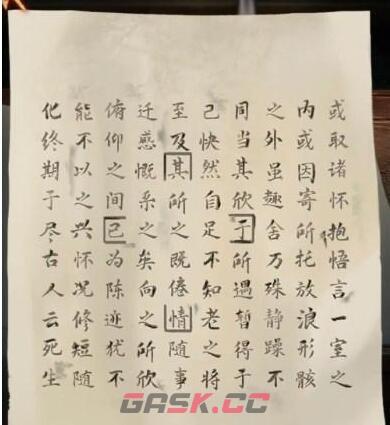 或取诸怀抱悟言一室之
内或因寄所托放浪形骸
之外虽趣舍万殊静躁不
同当其欣于所遇暂得于
己快然自足不知老之将
至及其所之既倦情随事
迁感慨系之矣向之所欣
俯仰之间已为陈迹犹不
能不以之兴怀况修短随
化终期于尽古人云死生
GASK.CC